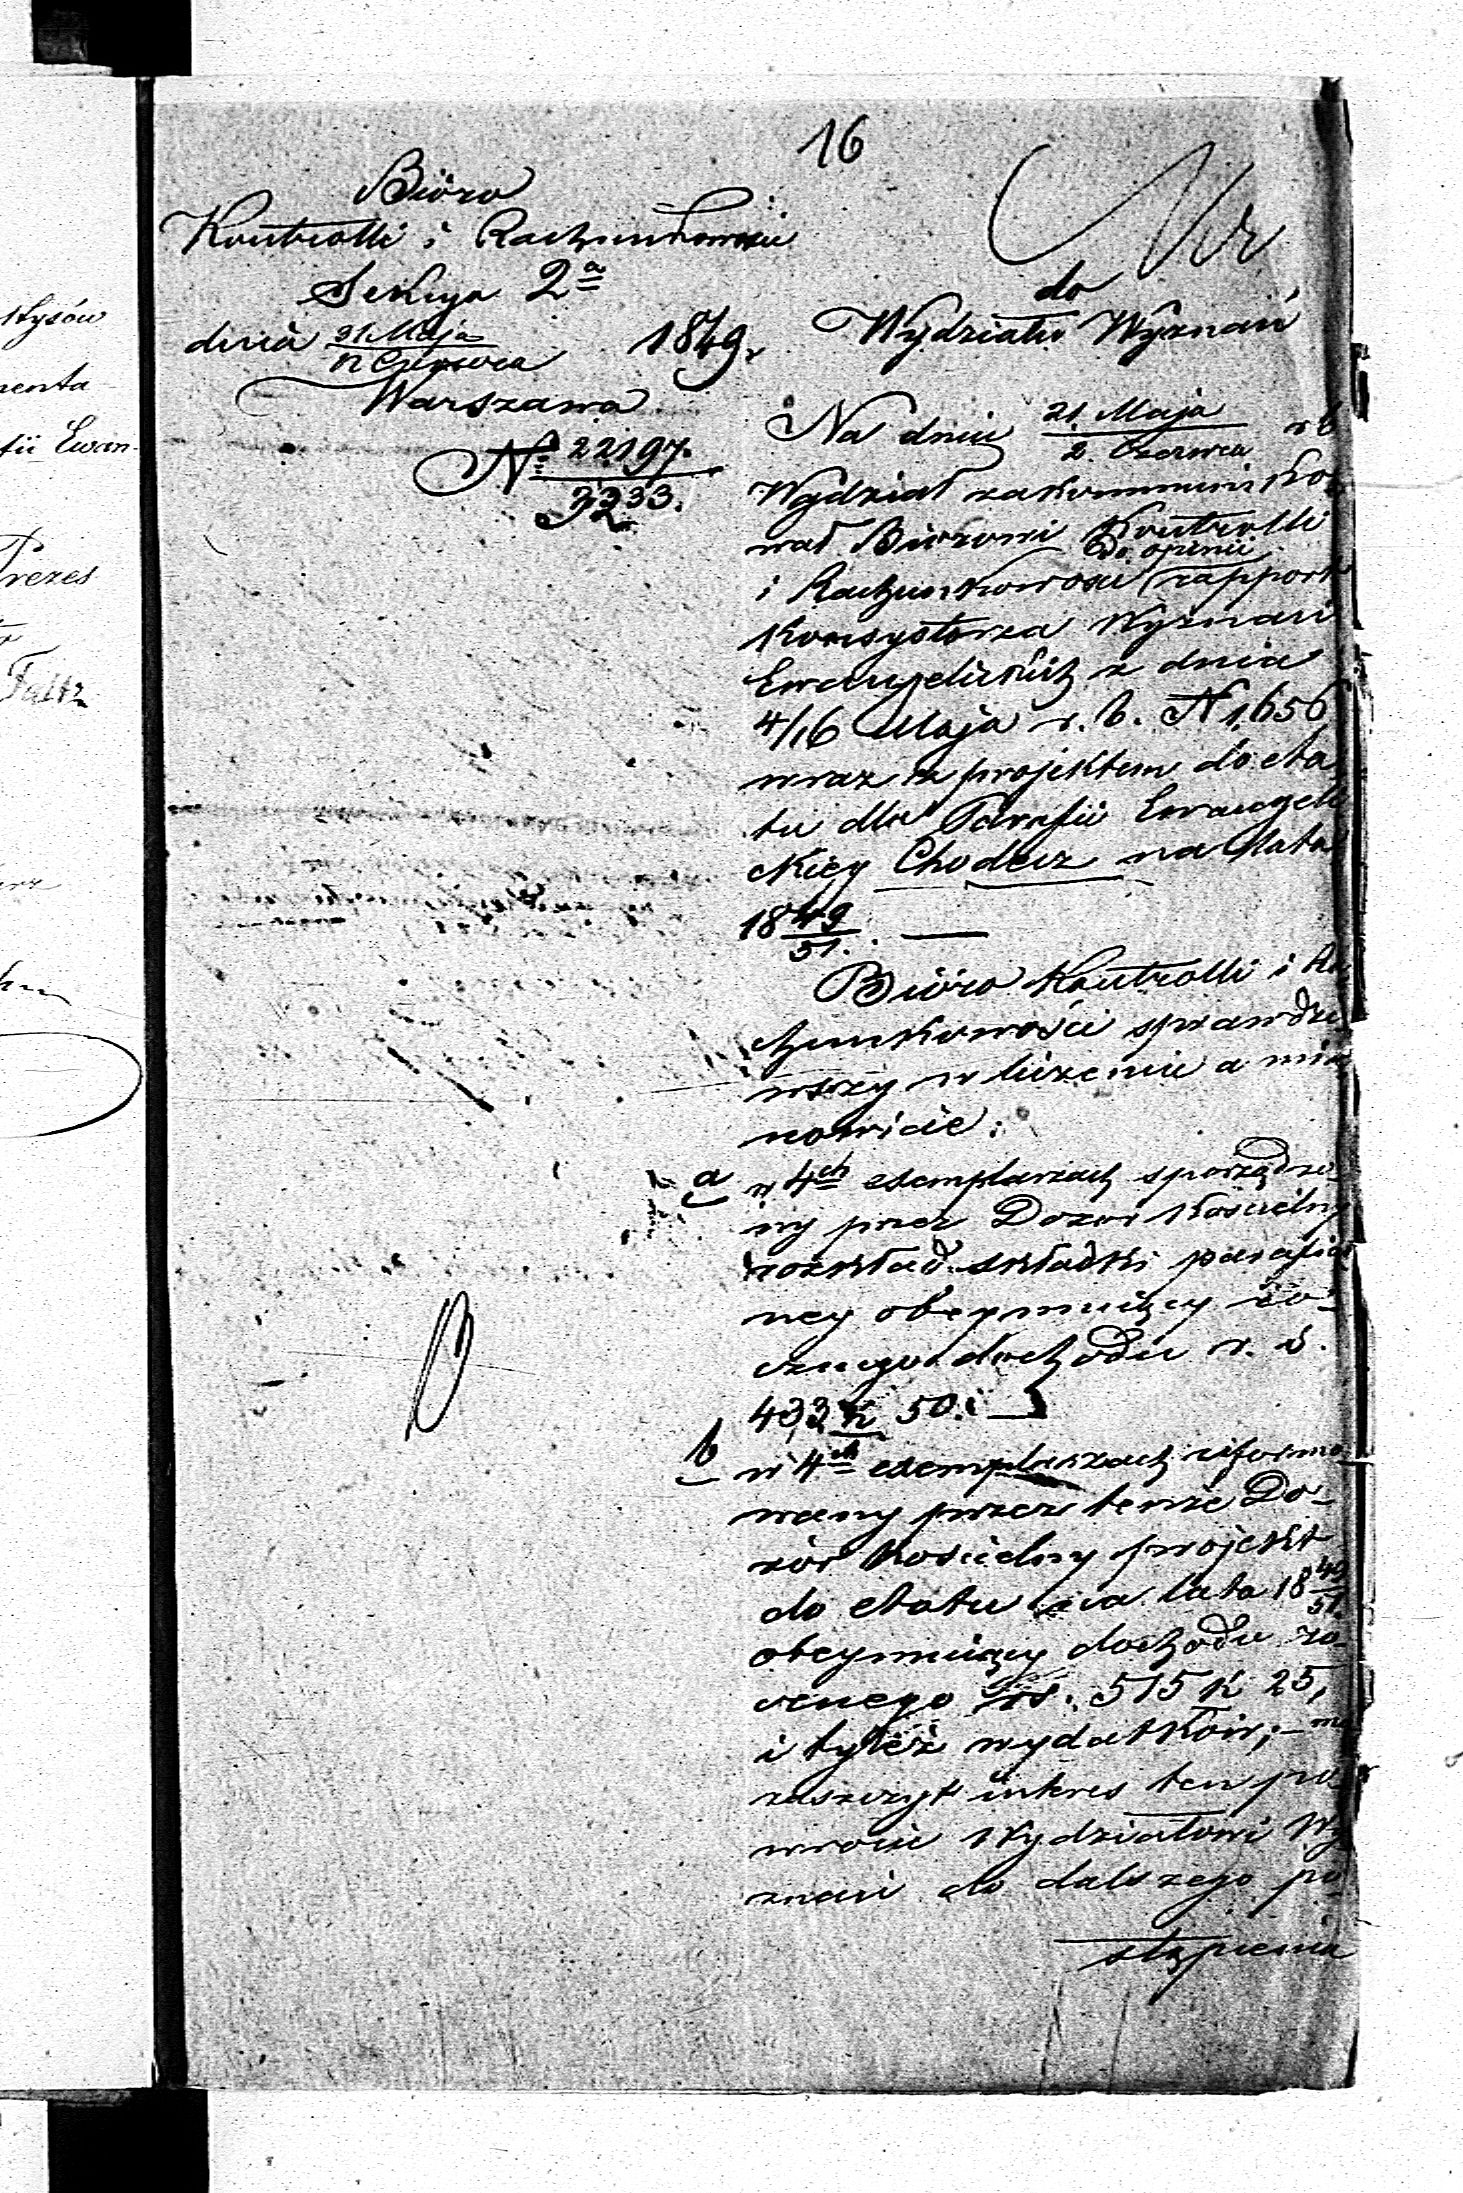 16
Bióro
Kontrolli i Rachunkowości
Sekcya 2a
dnia 31 Maja / 12 Czerwca 1849 r
Warszawa
No 22197. / 3233.
do
Wydziału Wyznań
Na dniu 21 Maja / 2 Czerwca rb
Wydział zakommuniko
wał Biórowi Kontrolli
do opinii
i Rachunkowości rapport
Konsystorza Wyznań
Ewangelickich z dnia
4/16 Maja r. b. N 1,656
wraz z projektem do eta
tu dla Parafii Ewangeli
ckiey Chodecz na lata
18 49/51. —
Bióro Kontrolli i Ra
chunkowości sprawdzi
wszy w liczeniu a mia
nowicie:
a w 4ch exemplarzach sporządzo
ny przez Dozór Kościelny
rozkład składki parafial
ney obeymuiący ro-
cznego dochodu r. s.
433 k 50. —
b w 4ch exemplarzach uformo
wany przez tenże Do-
zór Kościelny projekt
do etatu na lata 18 49/51
obeymuiący dochodu ro-
cznego rs. 515 k 25,
i tyleż wydatków; — ma
zaszczyt interes ten po
wrócić Wydziałowi Wy
znań do dalszego po-
stąpienia
stysów
menta
fii Ewan-
Prezes